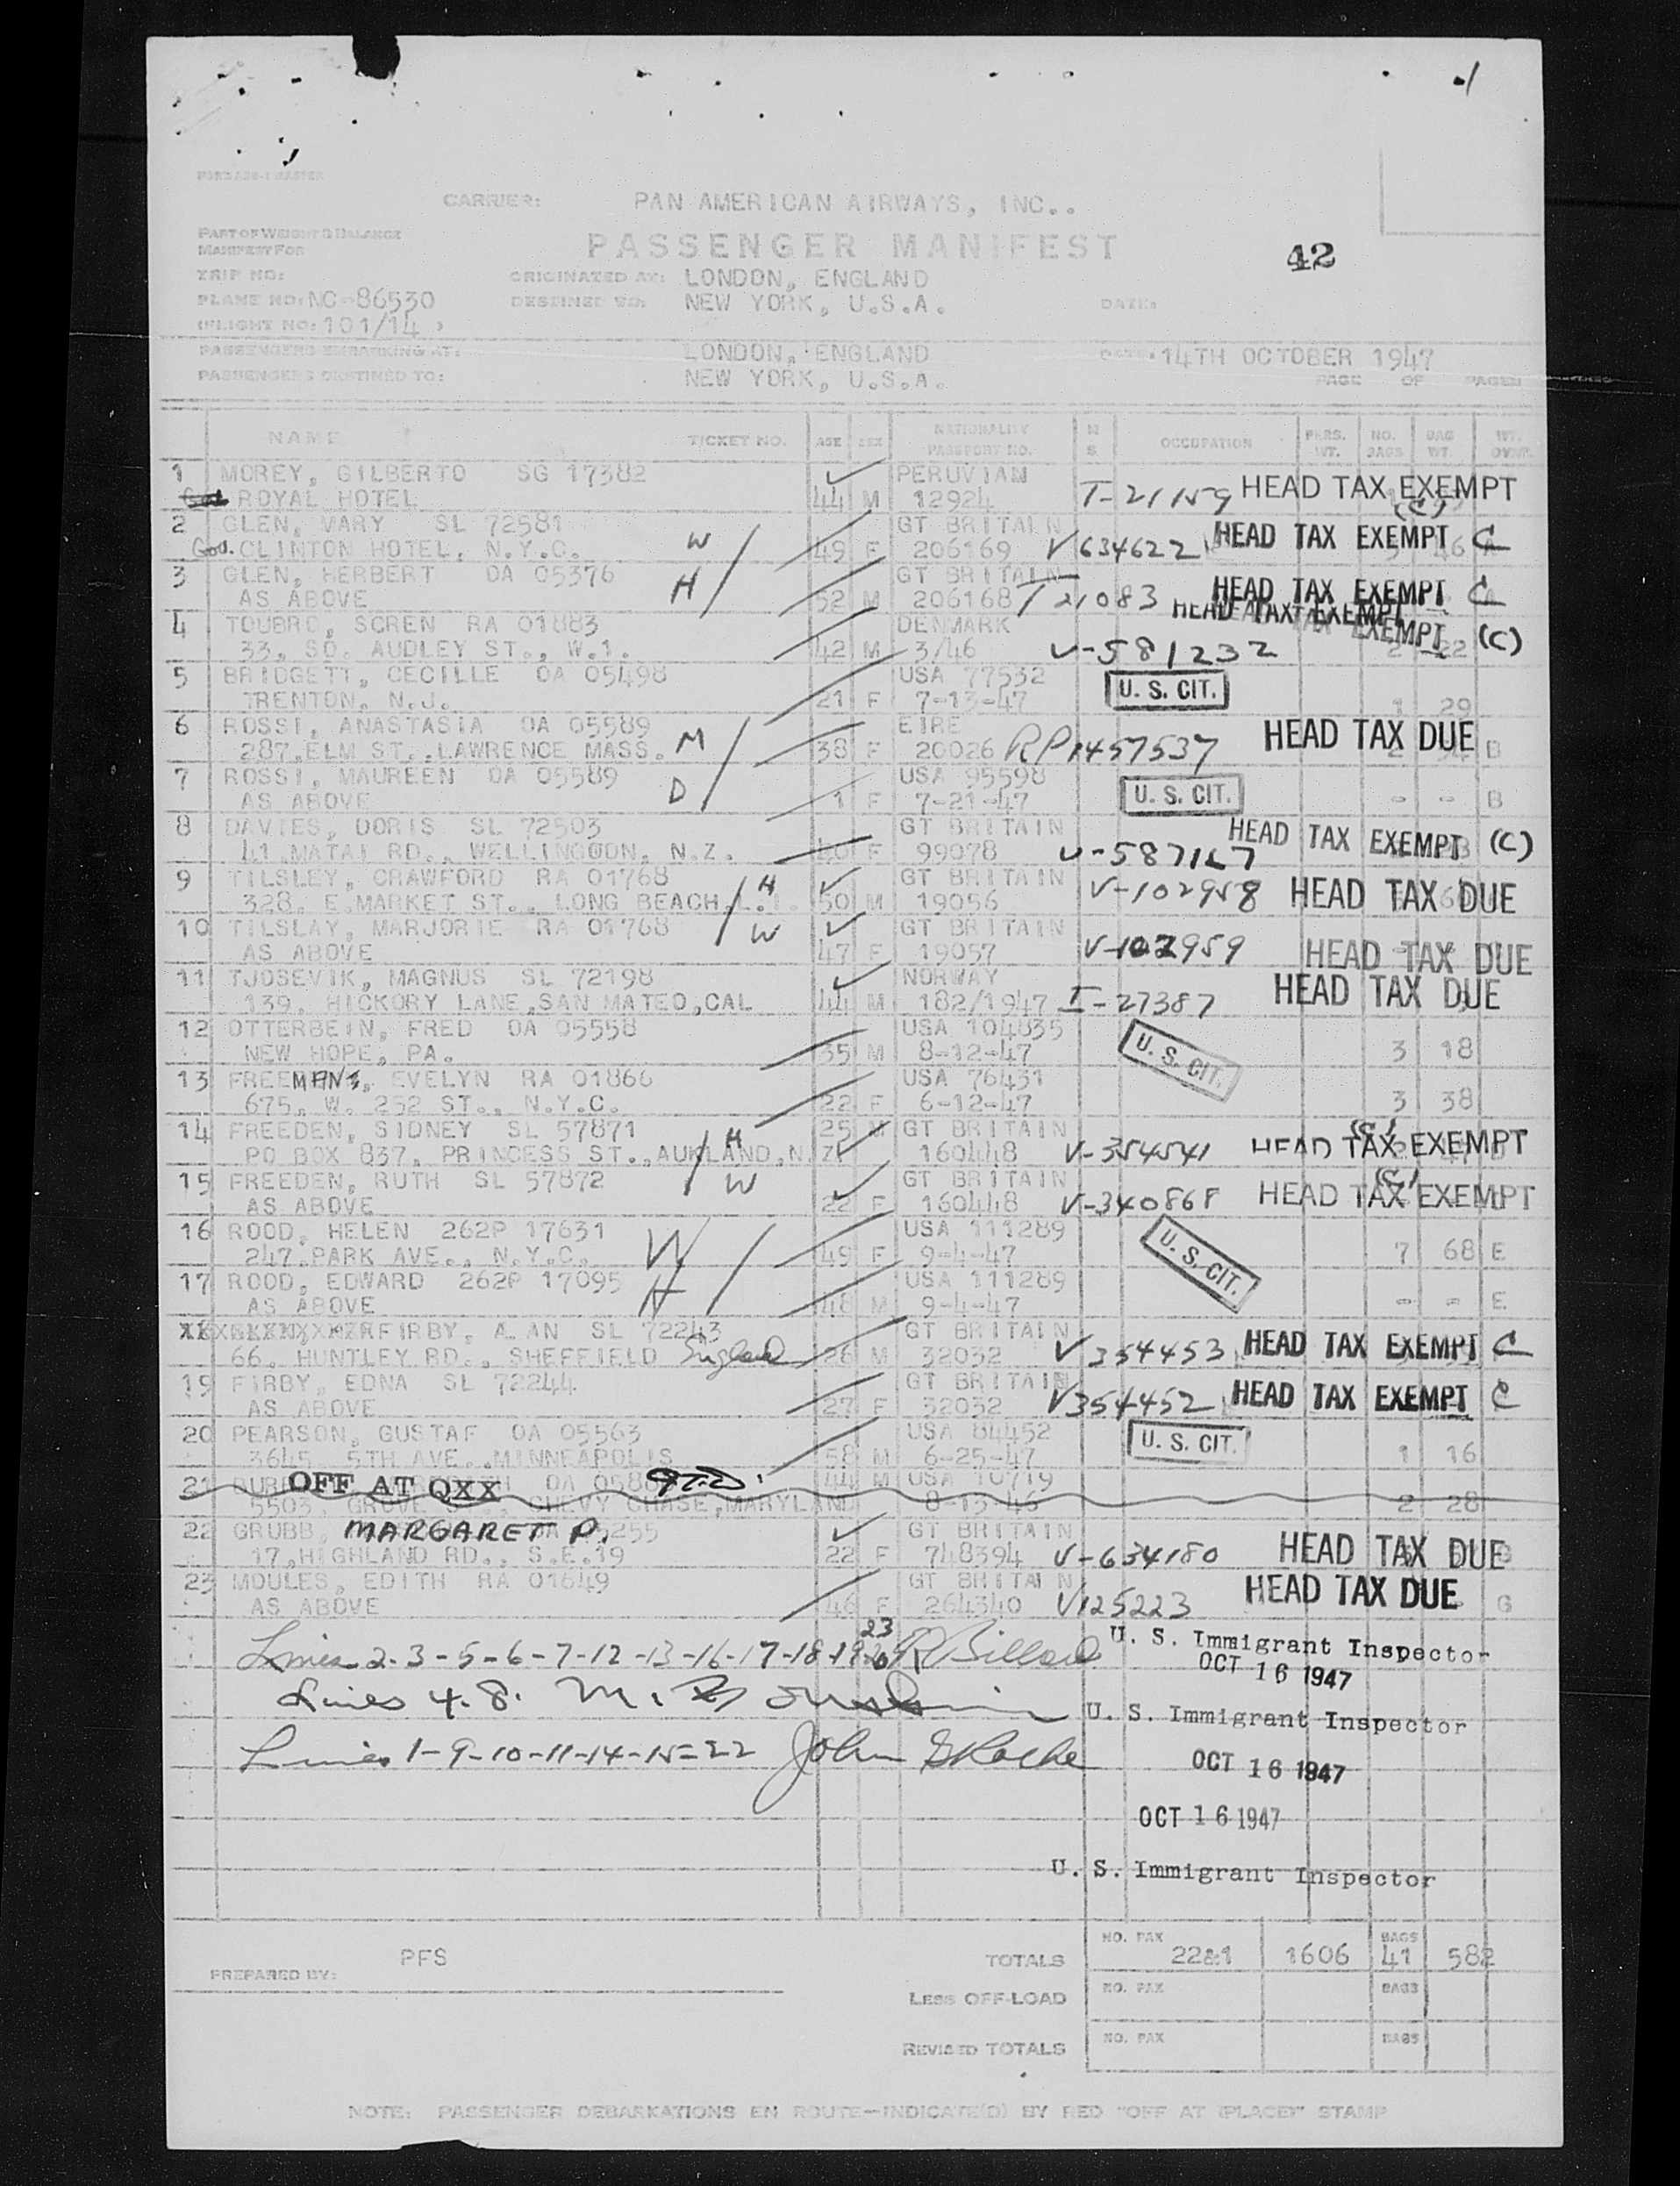 CARRIER: PAN AMERICAN AIRWAYS, INC..
PART OF WEIGHT & BALANCE
MANIFEST FOR
PASSENGER MANIFEST
42
TRIP NO:
ORIGINATED AT: LONDON, ENGLAND
PLANE NO: NC-86530
DESTINED TO: NEW YORK, U.S.A.
DATE:
(FLIGHT NO: 101/14 )
PASSENGERS EMBARKING AT: LONDON, ENGLAND
DATE: 14TH OCTOBER 1947
PASSENGERS DESTINED TO: NEW YORK, U.S.A.
PAGE OF PAGES
NAME TICKET NO. AGE SEX NATIONALITY PASSPORT NO. OCCUPATION PERS. WT. NO. BAGS BAG WT.
1 MOREY, GILBERTO SG 17382 PERUVIAN
ROYAL HOTEL 44 M 12924 T-21159 HEAD TAX EXEMPT (C)
2 GLEN, VARY SL 72581 W GT BRITAIN
CLINTON HOTEL, N.Y.C. 49 F 206169 V634622 HEAD TAX EXEMPT C
3 GLEN, HERBERT OA 05376 H GT BRITAIN
AS ABOVE 52 M 206168 T21083 HEAD TAX EXEMPT C
4 TOUBRO, SCREN RA 01883 DENMARK HEAD TAX EXEMPT
33, SO. AUDLEY ST., W.1. 42 M 3/46 V-581232 EXEMPT (C) 2 22
5 BRIDGETT, CECILLE OA 05498 USA 77532 U. S. CIT.
TRENTON, N.J. 21 F 7-13-47 1 29
6 ROSSI, ANASTASIA OA 05589 EIRE
287.ELM ST..LAWRENCE MASS. M 38 F 20026 RP1457537 HEAD TAX DUE B
7 ROSSI, MAUREEN OA 05589 USA 95598
AS ABOVE D 1 F 7-21-47 U. S. CIT. - - B
8 DAVIES, DORIS SL 72503 GT BRITAIN
41.MATAI RD., WELLINGDON, N.Z. 40 F 99078 V-587167 HEAD TAX EXEMPT (C)
9 TILSLEY, CRAWFORD RA 01768 H GT BRITAIN
328. E.MARKET ST., LONG BEACH, 50 M 19056 V-102958 HEAD TAX DUE
10 TILSLAY, MARJORIE RA 01768 W GT BRITAIN
AS ABOVE 47 F 19057 V-102959 HEAD TAX DUE
11 TJOSEVIK, MAGNUS SL 72198 NORWAY
139. HICKORY LANE,SAN MATEO,CAL 44 M 182/1947 I-27387 HEAD TAX DUE
12 OTTERBEIN, FRED OA 05558 USA 104835
NEW HOPE, PA. 35 M 8-12-47 U. S. CIT. 3 18
13 EVELYN RA 01866 USA 76431
675, W. 252 ST., N.Y.C. 22 F 6-12-47 3 38
14 FREEDEN, SIDNEY SL 57871 H 25 M GT BRITAIN
PO BOX 837, PRINCESS ST.,AUKLAND,N.Z 160448 V-354541 HEAD TAX EXEMPT (C)
15 FREEDEN, RUTH SL 57872 W GT BRITAIN
AS ABOVE 22 F 160448 V-340868 HEAD TAX EXEMPT (C)
16 ROOD, HELEN 262P 17631 USA 111289
247.PARK AVE., N.Y.C. W 49 F 9-4-47 U. S. CIT. 7 68 E
17 ROOD, EDWARD 262P 17095 USA 111289
AS ABOVE H 48 M 9-4-47 - - E
FIRBY, A AN SL 72243 GT BRITAIN
66, HUNTLEY RD., SHEFFIELD England 26 M 32032 V354453 HEAD TAX EXEMPT C
19 FIRBY, EDNA SL 72244 GT BRITAIN
AS ABOVE 27 F 32032 V354452 HEAD TAX EXEMPT C
20 PEARSON, GUSTAF OA 05563 USA 84452
3645. 5TH AVE..MINNEAPOLIS 58 M 6-25-47 U. S. CIT. 1 16
21 OFF AT QXX 44 M USA 10719
5503, GROVE CHEVY CHASE,MARYLAND 8-13-46 2 28
22 GRUBB, MARGARET P. GT BRITAIN
17,HIGHLAND RD., S.E.19 22 F 748394 V-634180 HEAD TAX DUE
23 MOULES, EDITH RA 01649 GT BRITAIN
AS ABOVE 46 F 264340 V125223 HEAD TAX DUE G
Lines 2-3-5-6-7-12-13-16-17-18-19-20 23
U. S. Immigrant Inspector
OCT 16 1947
Lines 4-8.
U. S. Immigrant Inspector
Lines 1-9-10-11-14-15-22 John
OCT 16 1947
OCT 16 1947
U. S. Immigrant Inspector
PREPARED BY: PFS
TOTALS NO. PAX 22&1 1606 BAGS 41 582
LESS OFF-LOAD NO. PAX BAGS
REVISED TOTALS NO. PAX BAGS
NOTE: PASSENGER DEBARKATIONS EN ROUTE—INDICATE(D) BY RED "OFF AT (PLACE)" STAMP